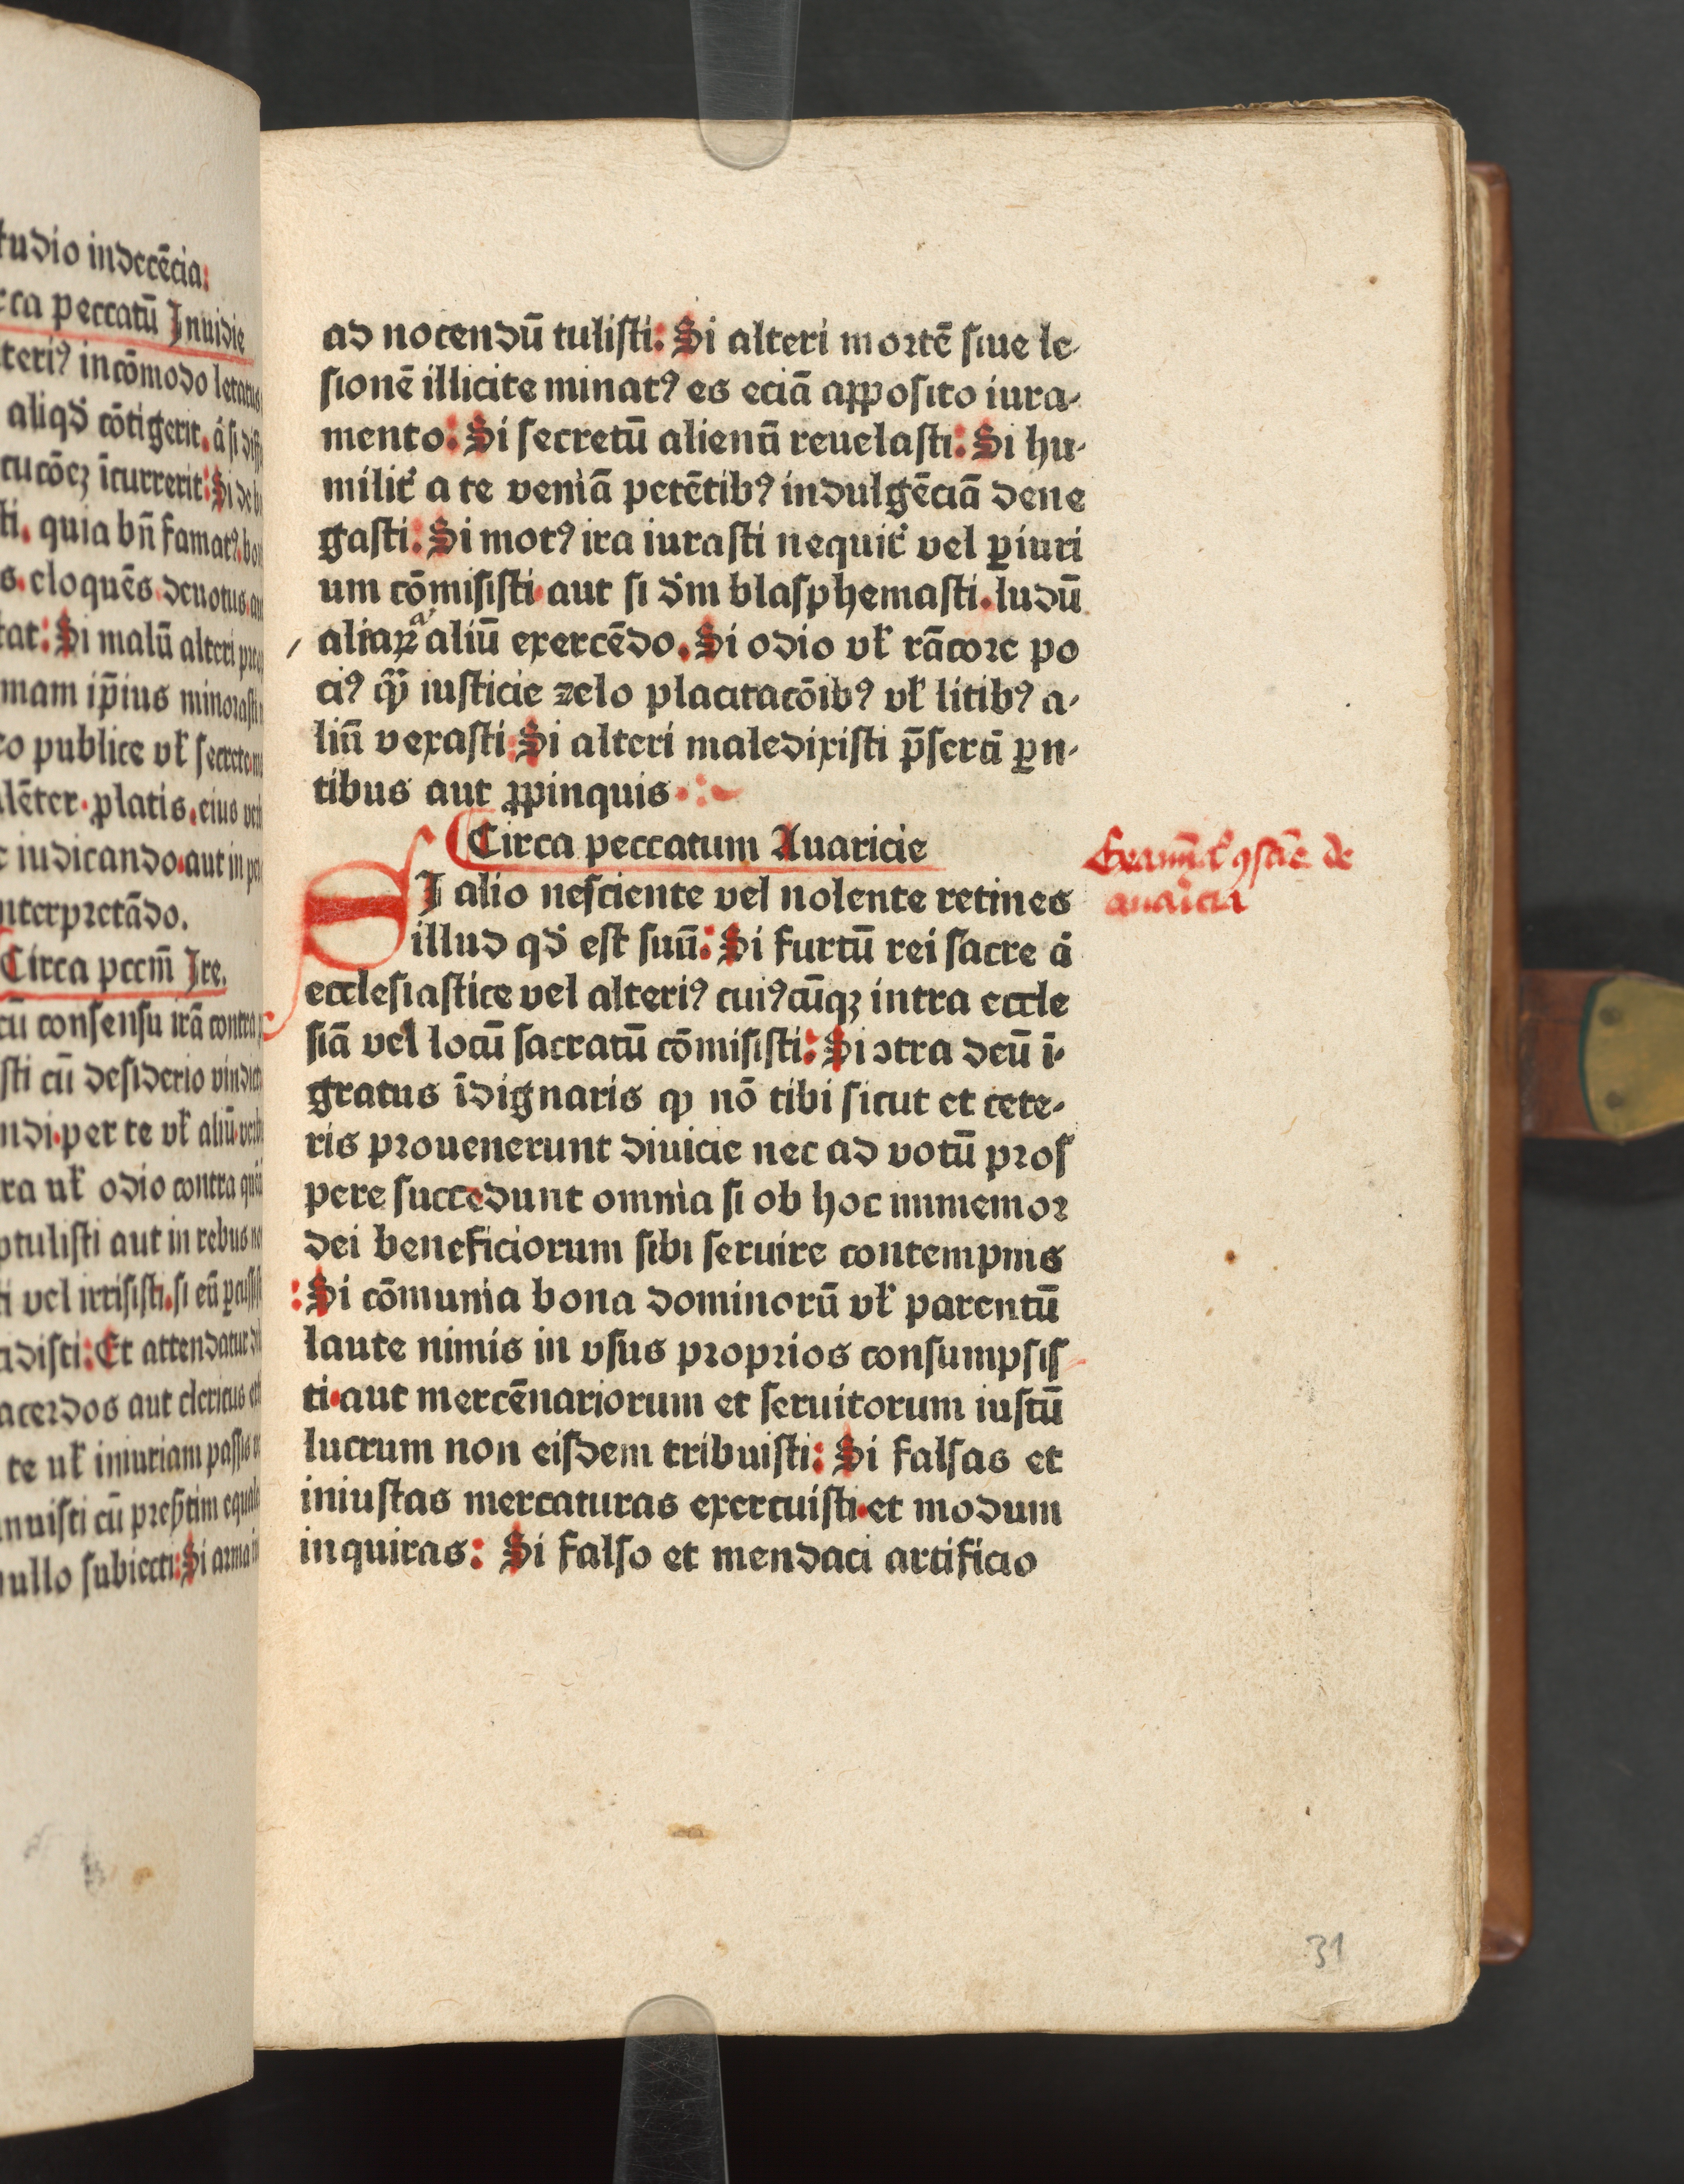 tudio indecēcia:
rca peccatū Inuidie
teriꝰ incōmodo letatus
aliqđ cōtigerit. a̍ si
tucōeꝫ īcurrerit: Si de
ti. quia bn̄ famatꝰ.
s. eloquēs. deuotus.
tat: Si malū alteri
mam ip̄ius minorasti
co publice vł secrete
lēter. ꝓlatis. eius
c iudicando. aut in
nterpretādo.
Circa pccm̄ Ire.
cū consensu irā contra
sti cū desiderio
ndi. per te vł aliū
ra uł odio contra
ptulisti aut in rebus
ti vel irrisisti. si eū
idisti: Et attendatur
acerdos aut clericus
te uł iniuriam passis
nuisti cū
nullo subiecti: Si arma
ad nocendū tulisti: Si alteri mortē siue le-
sionē illicite minatꝰ es eciā apposito iura-
mento: Si secretū alienū reuelasti: Si hu-
milit̛ a te veniā petētibꝰ indulgēciā dene
gasti: Si motꝰ ira iurasti nequit̛ vel ꝑiuri
um cōmisisti. aut si dm̄ blasphemasti. ludū
aliaꝝ aliū exercēdo. Si odio vł rācore po
ciꝰ qꝫ iusticie zelo placitacōibꝰ vł litibꝰ a-
liū vexasti: Si alteri maledixisti p̄sertī ꝑn-
tibus aut ꝓpinquis
Circa peccatum Auaricie
SI alio nesciente vel nolente retines
illud qđ est suū: Si furtū rei sacre a̍
ecclesiastice vel alteriꝰ cuiꝰcūqꝫ intra eccle
siā vel locū sacratū cōmisisti: Si ↄtra deū ī-
gratus īdignaris ꝙ nō tibi sicut et cete-
ris prouenerunt diuicie nec ad votū pros
pere succedunt omnia si ob hoc immemor
dei beneficiorum sibi seruire contempnis
: Si cōmunia bona dominorū vł parentū
laute nimis in vsus proprios consumpsis
ti. aut mercēnariorum et seruitorum iustū
lucrum non eisdem tribuisti: Si falsas et
iniustas mercaturas exercuisti. et modum
inquiras: Si falso et mendaci artificio
de
auaricia
31